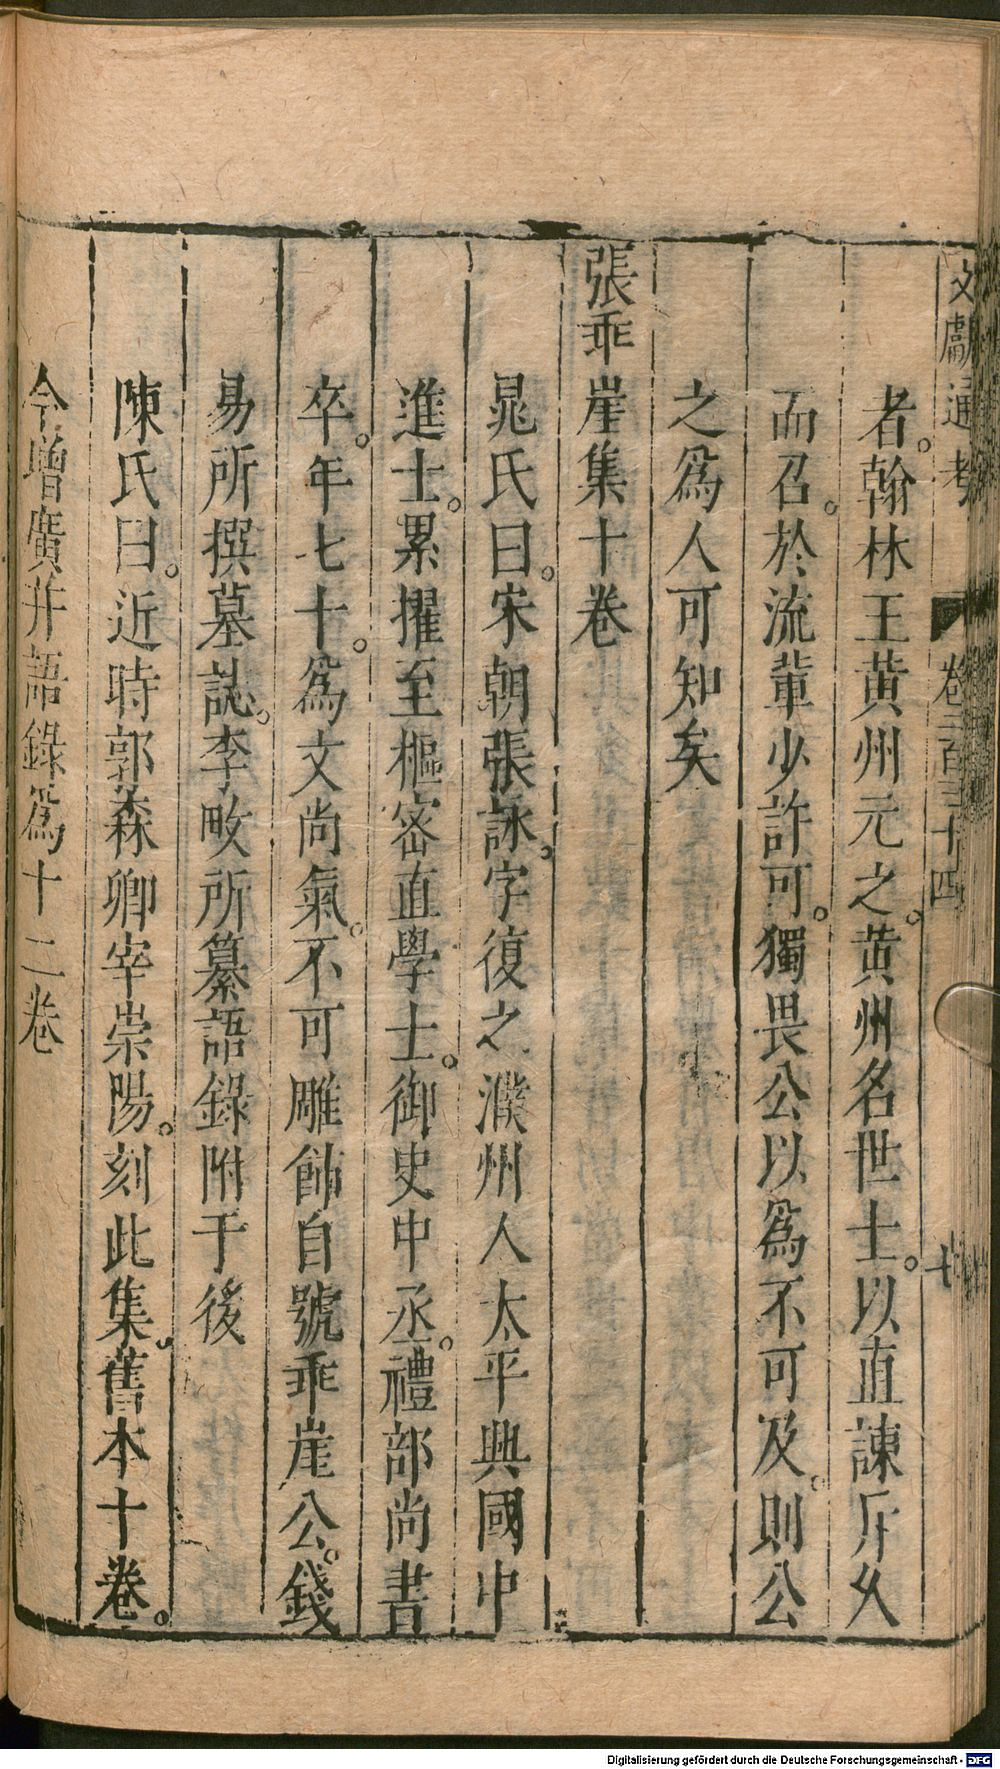 文獻通考 卷二百三十四 七
者。翰林王黄州元之。黄州名世士。以直諫斥久
而召。於流輩少許可。獨畏公以爲不可及。則公
之爲人可知矣
張乖崖集十卷
晁氏曰。宋朝張詠。字復之濮州人太平興國中
進士。累擢至樞密直學士。御史中丞。禮部尚書
卒。年七十。爲文尚氣。不可雕飾自號乖崖公。錢
易所撰墓誌。李畋所纂語錄附于後
陳氏曰。近時郭森卿宰崇陽。刻此集。舊本十卷。
今增廣并語錄爲十二卷
Digitalisierung gefördert durch die Deutsche Forschungsgemeinschaft - DFG